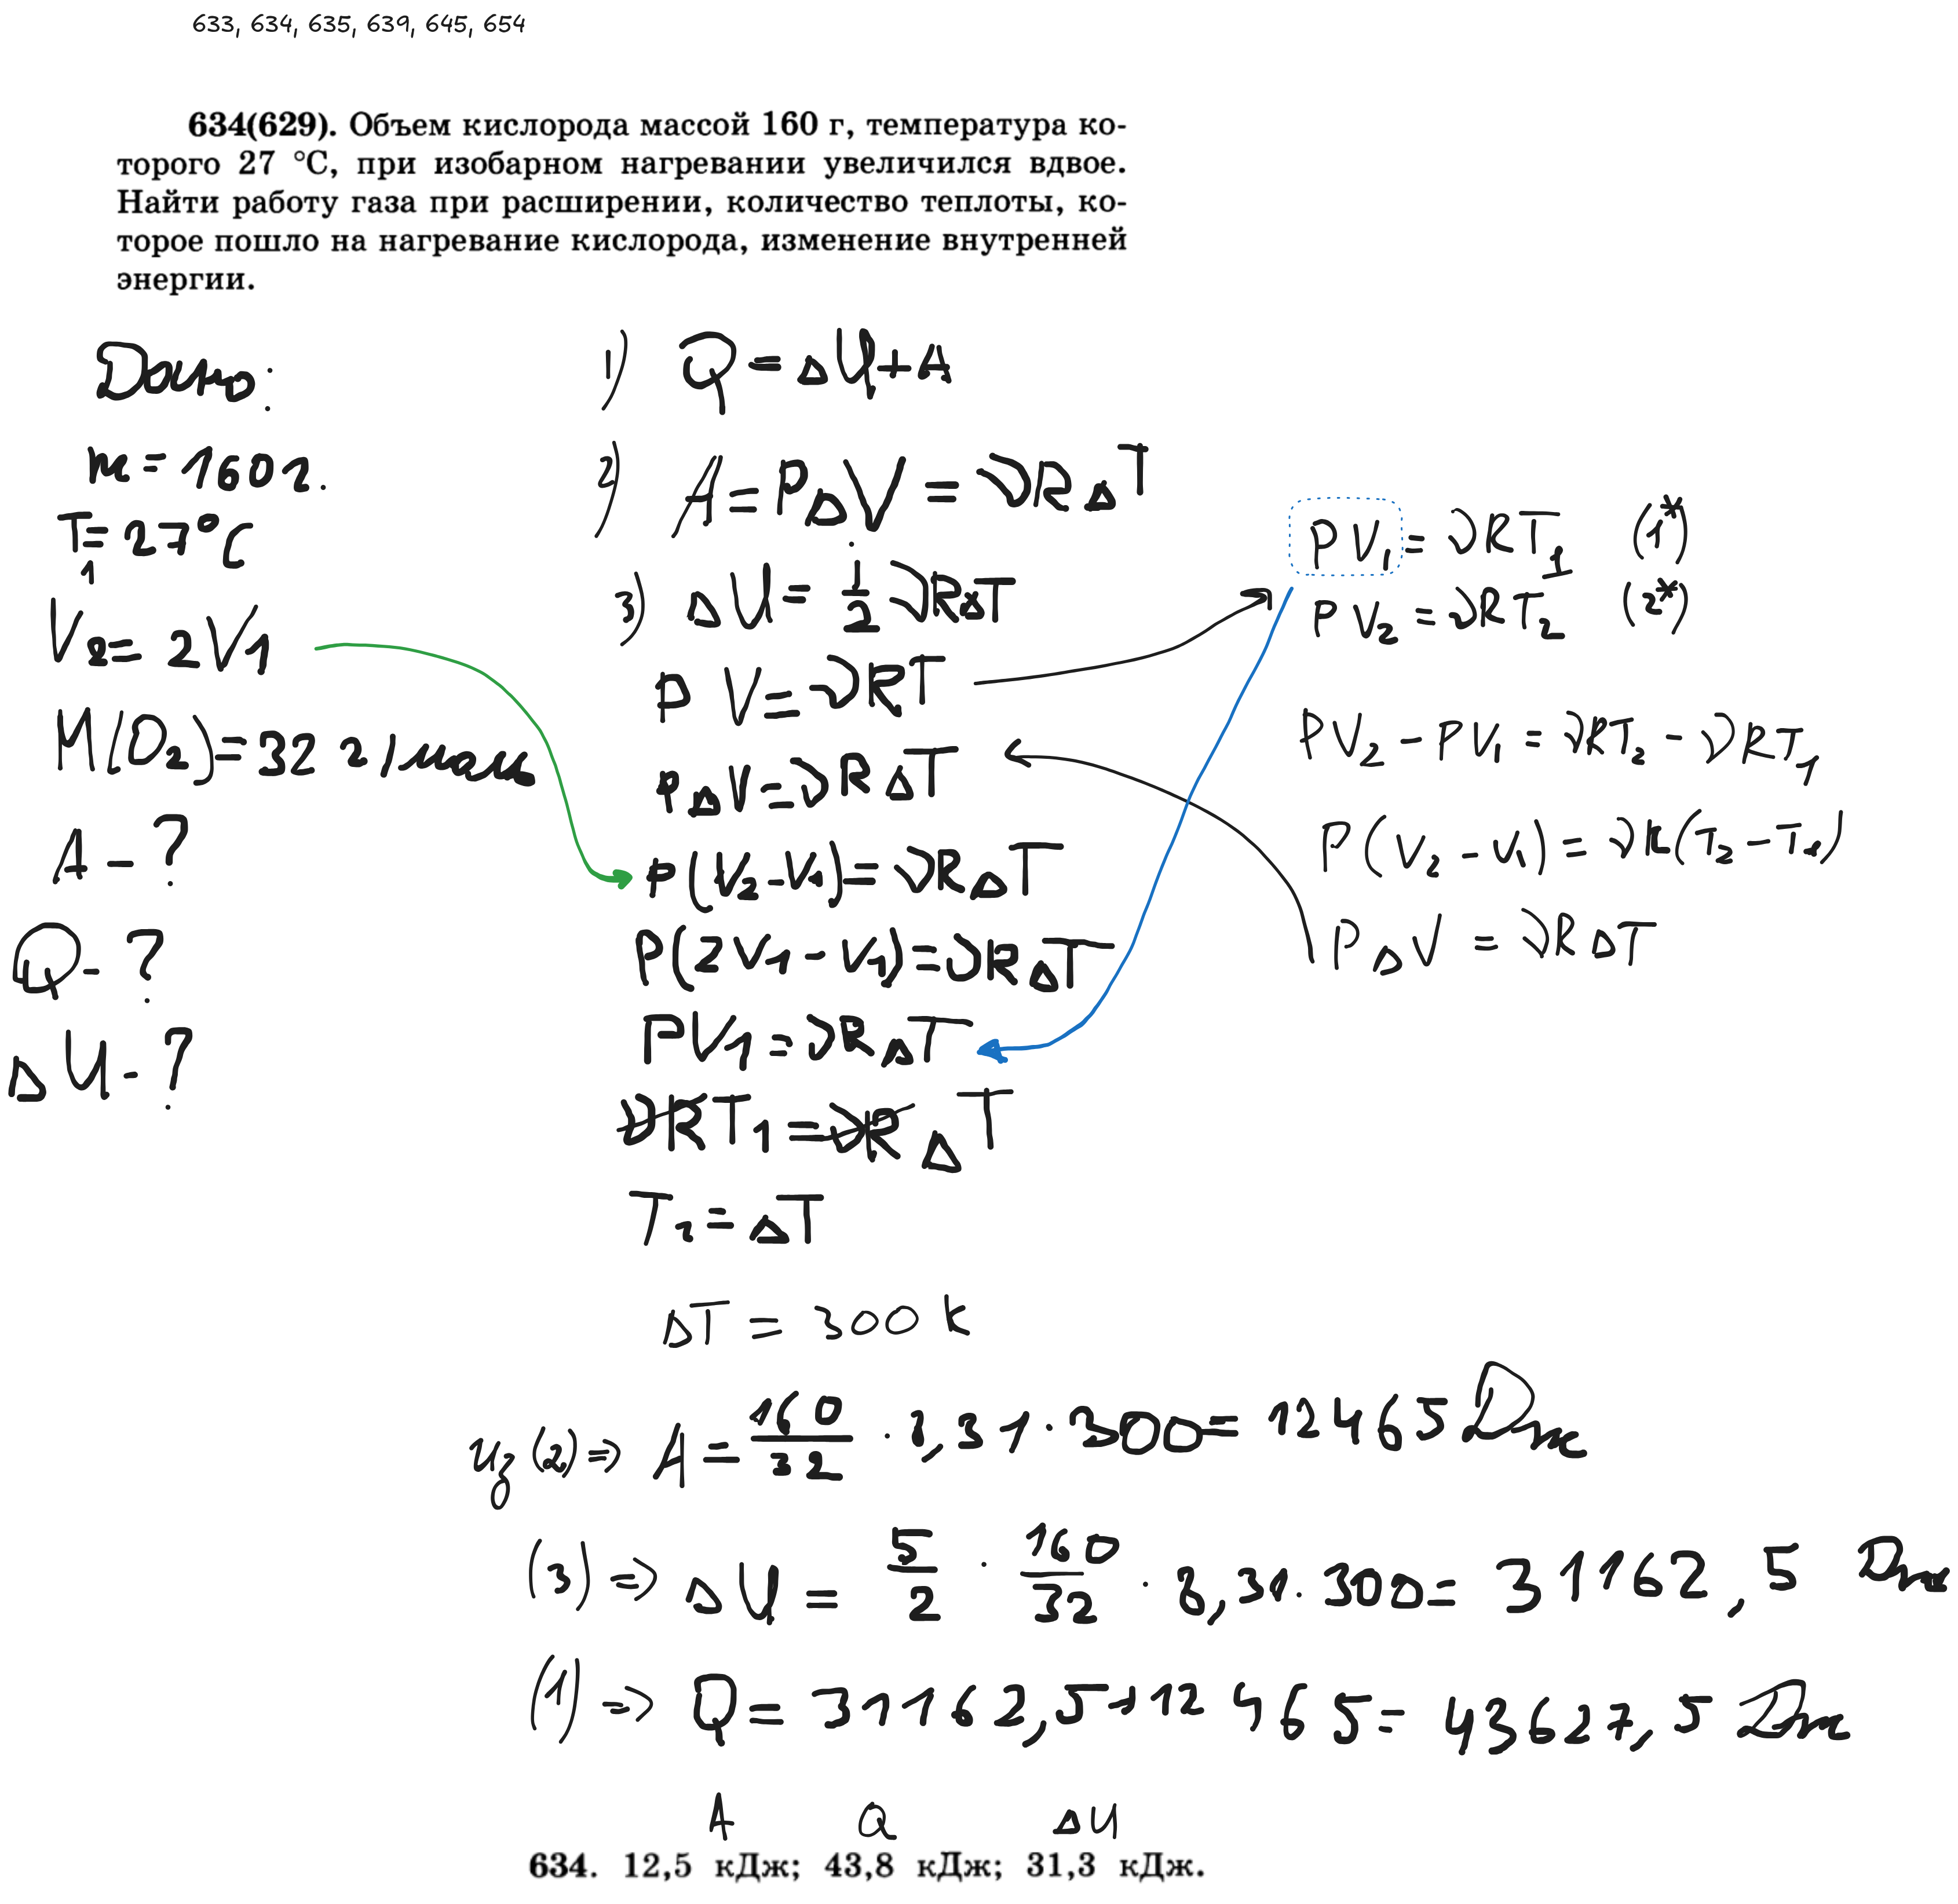 633, 634, 635, 639, 645, 654
634(629). Объем кислорода массой 160 г, температура ко-
торого 27 °С, при изобарном нагревании увеличился вдвое.
Найти работу газа при расширении, количество теплоты, ко-
торое пошло на нагревание кислорода, изменение внутренней
энергии.
Дано:
m = 160 г.
T₁ = 27°C
V₂ = 2V₁
M(O₂) = 32 г/моль
A - ?
Q - ?
ΔU - ?
1) Q = ΔU + A
2) A = PΔV = νRΔT
3) ΔU = i/2 νRΔT
PV = νRT
PΔV = νRΔT
P(V₂ - V₁) = νRΔT
P(2V₁ - V₁) = νRΔT
PV₁ = νRΔT
νRT₁ = νRΔT
T₁ = ΔT
ΔT = 300 K
PV₁ = νRT₁ (1*)
PV₂ = νRT₂ (2*)
PV₂ - PV₁ = νRT₂ - νRT₁
P(V₂ - V₁) = νR(T₂ - T₁)
PΔV = νRΔT
из (2) => A = 160/32 · 8,31 · 300 = 12465 Дж
(3) => ΔU = 5/2 · 160/32 · 8,31 · 300 = 31162,5 Дж
(1) => Q = 31162,5 + 12465 = 43627,5 Дж
A Q ΔU
634. 12,5 кДж; 43,8 кДж; 31,3 кДж.